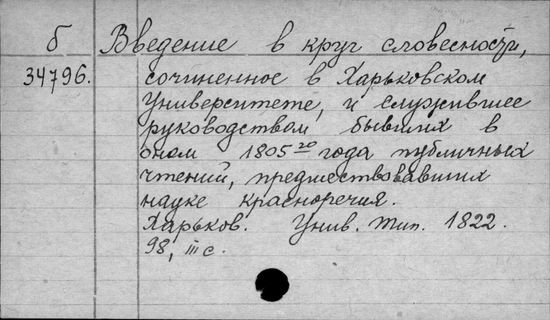 б Введение в круг словесности,
34796. сочиненное в Харьковском
Университете, и служившее
руководством бывших в
оном 1805го года публичных
чтений, предшествовавших
науке красноречия.
Харьков. Унив. тип. 1822.
98, III с.